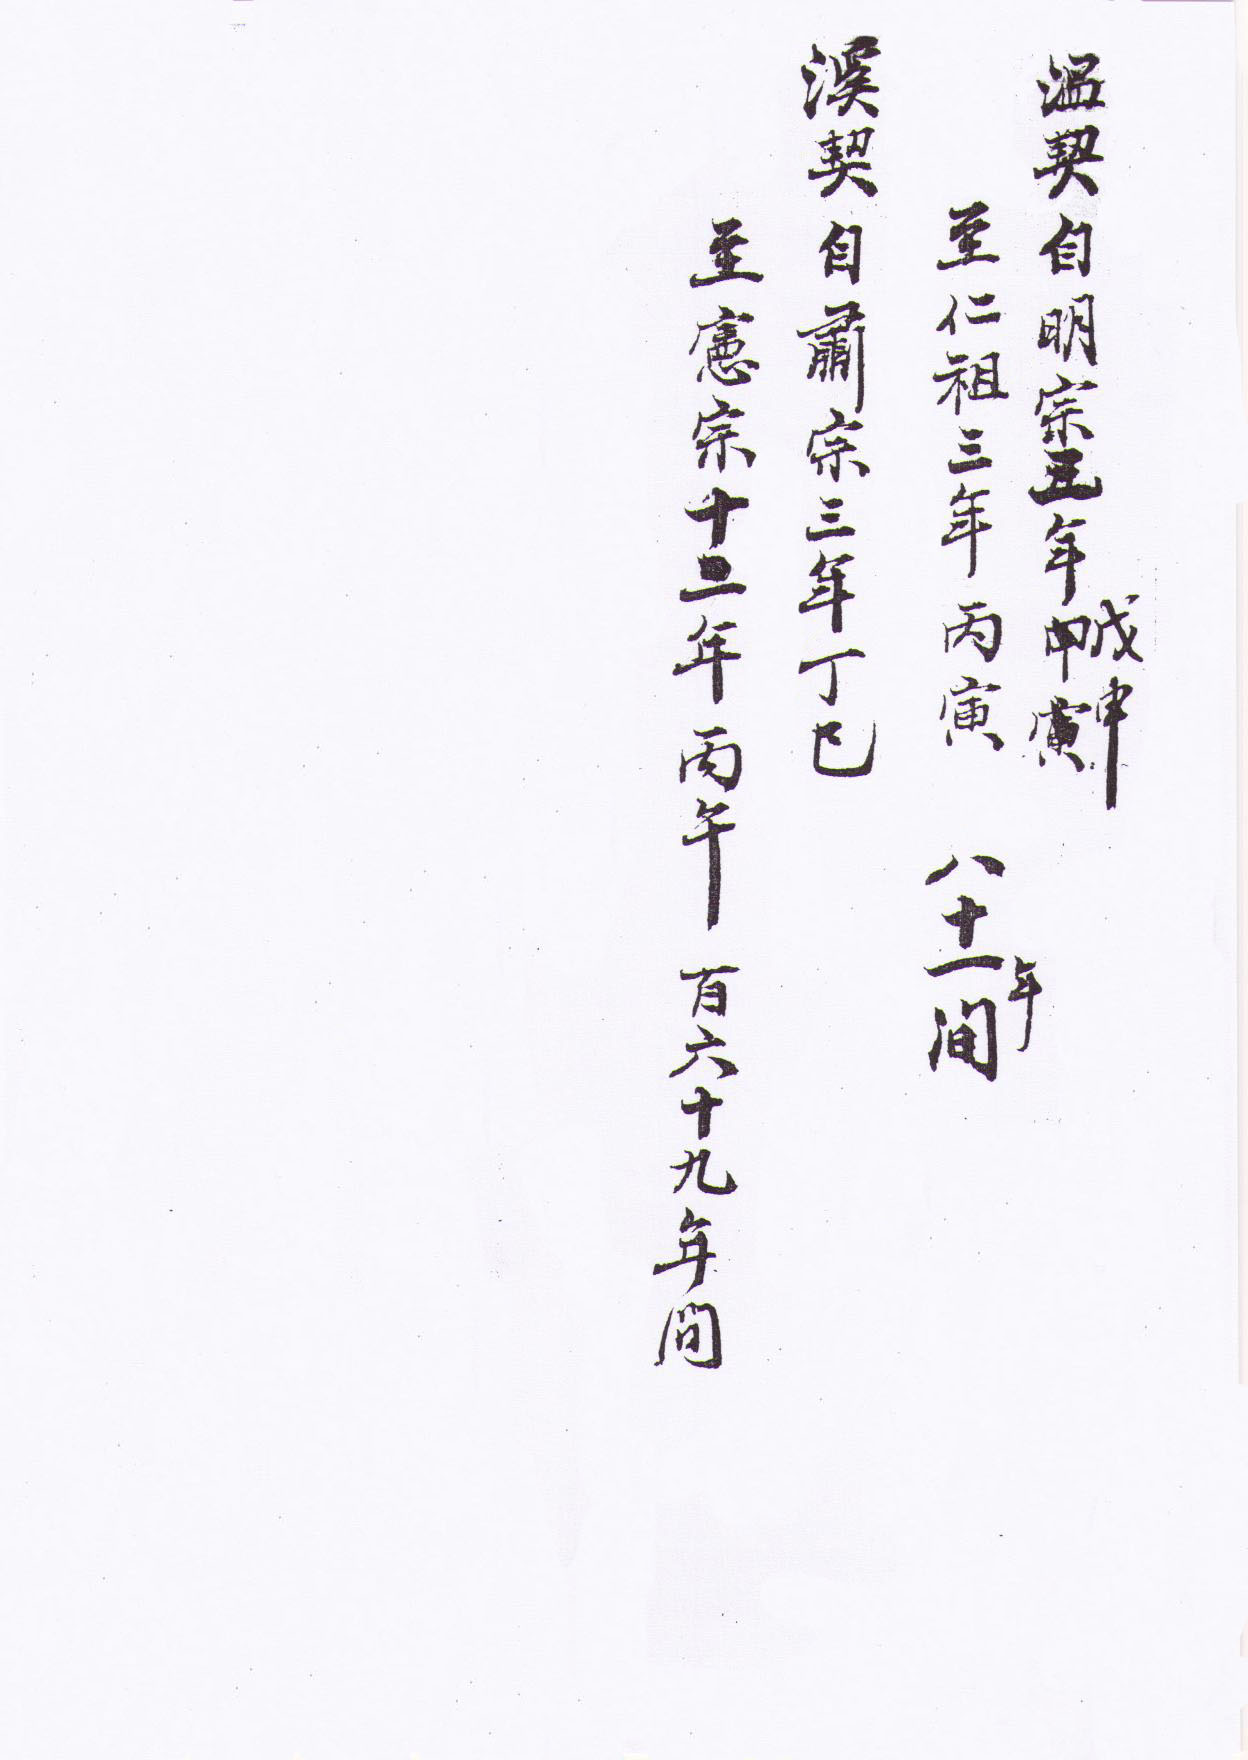 温契自明宗五年甲寅
戊申
至仁祖三年丙寅 八十一間
年
溪契自肅宗三年丁巳
至憲宗十二年丙午 百六十九年间